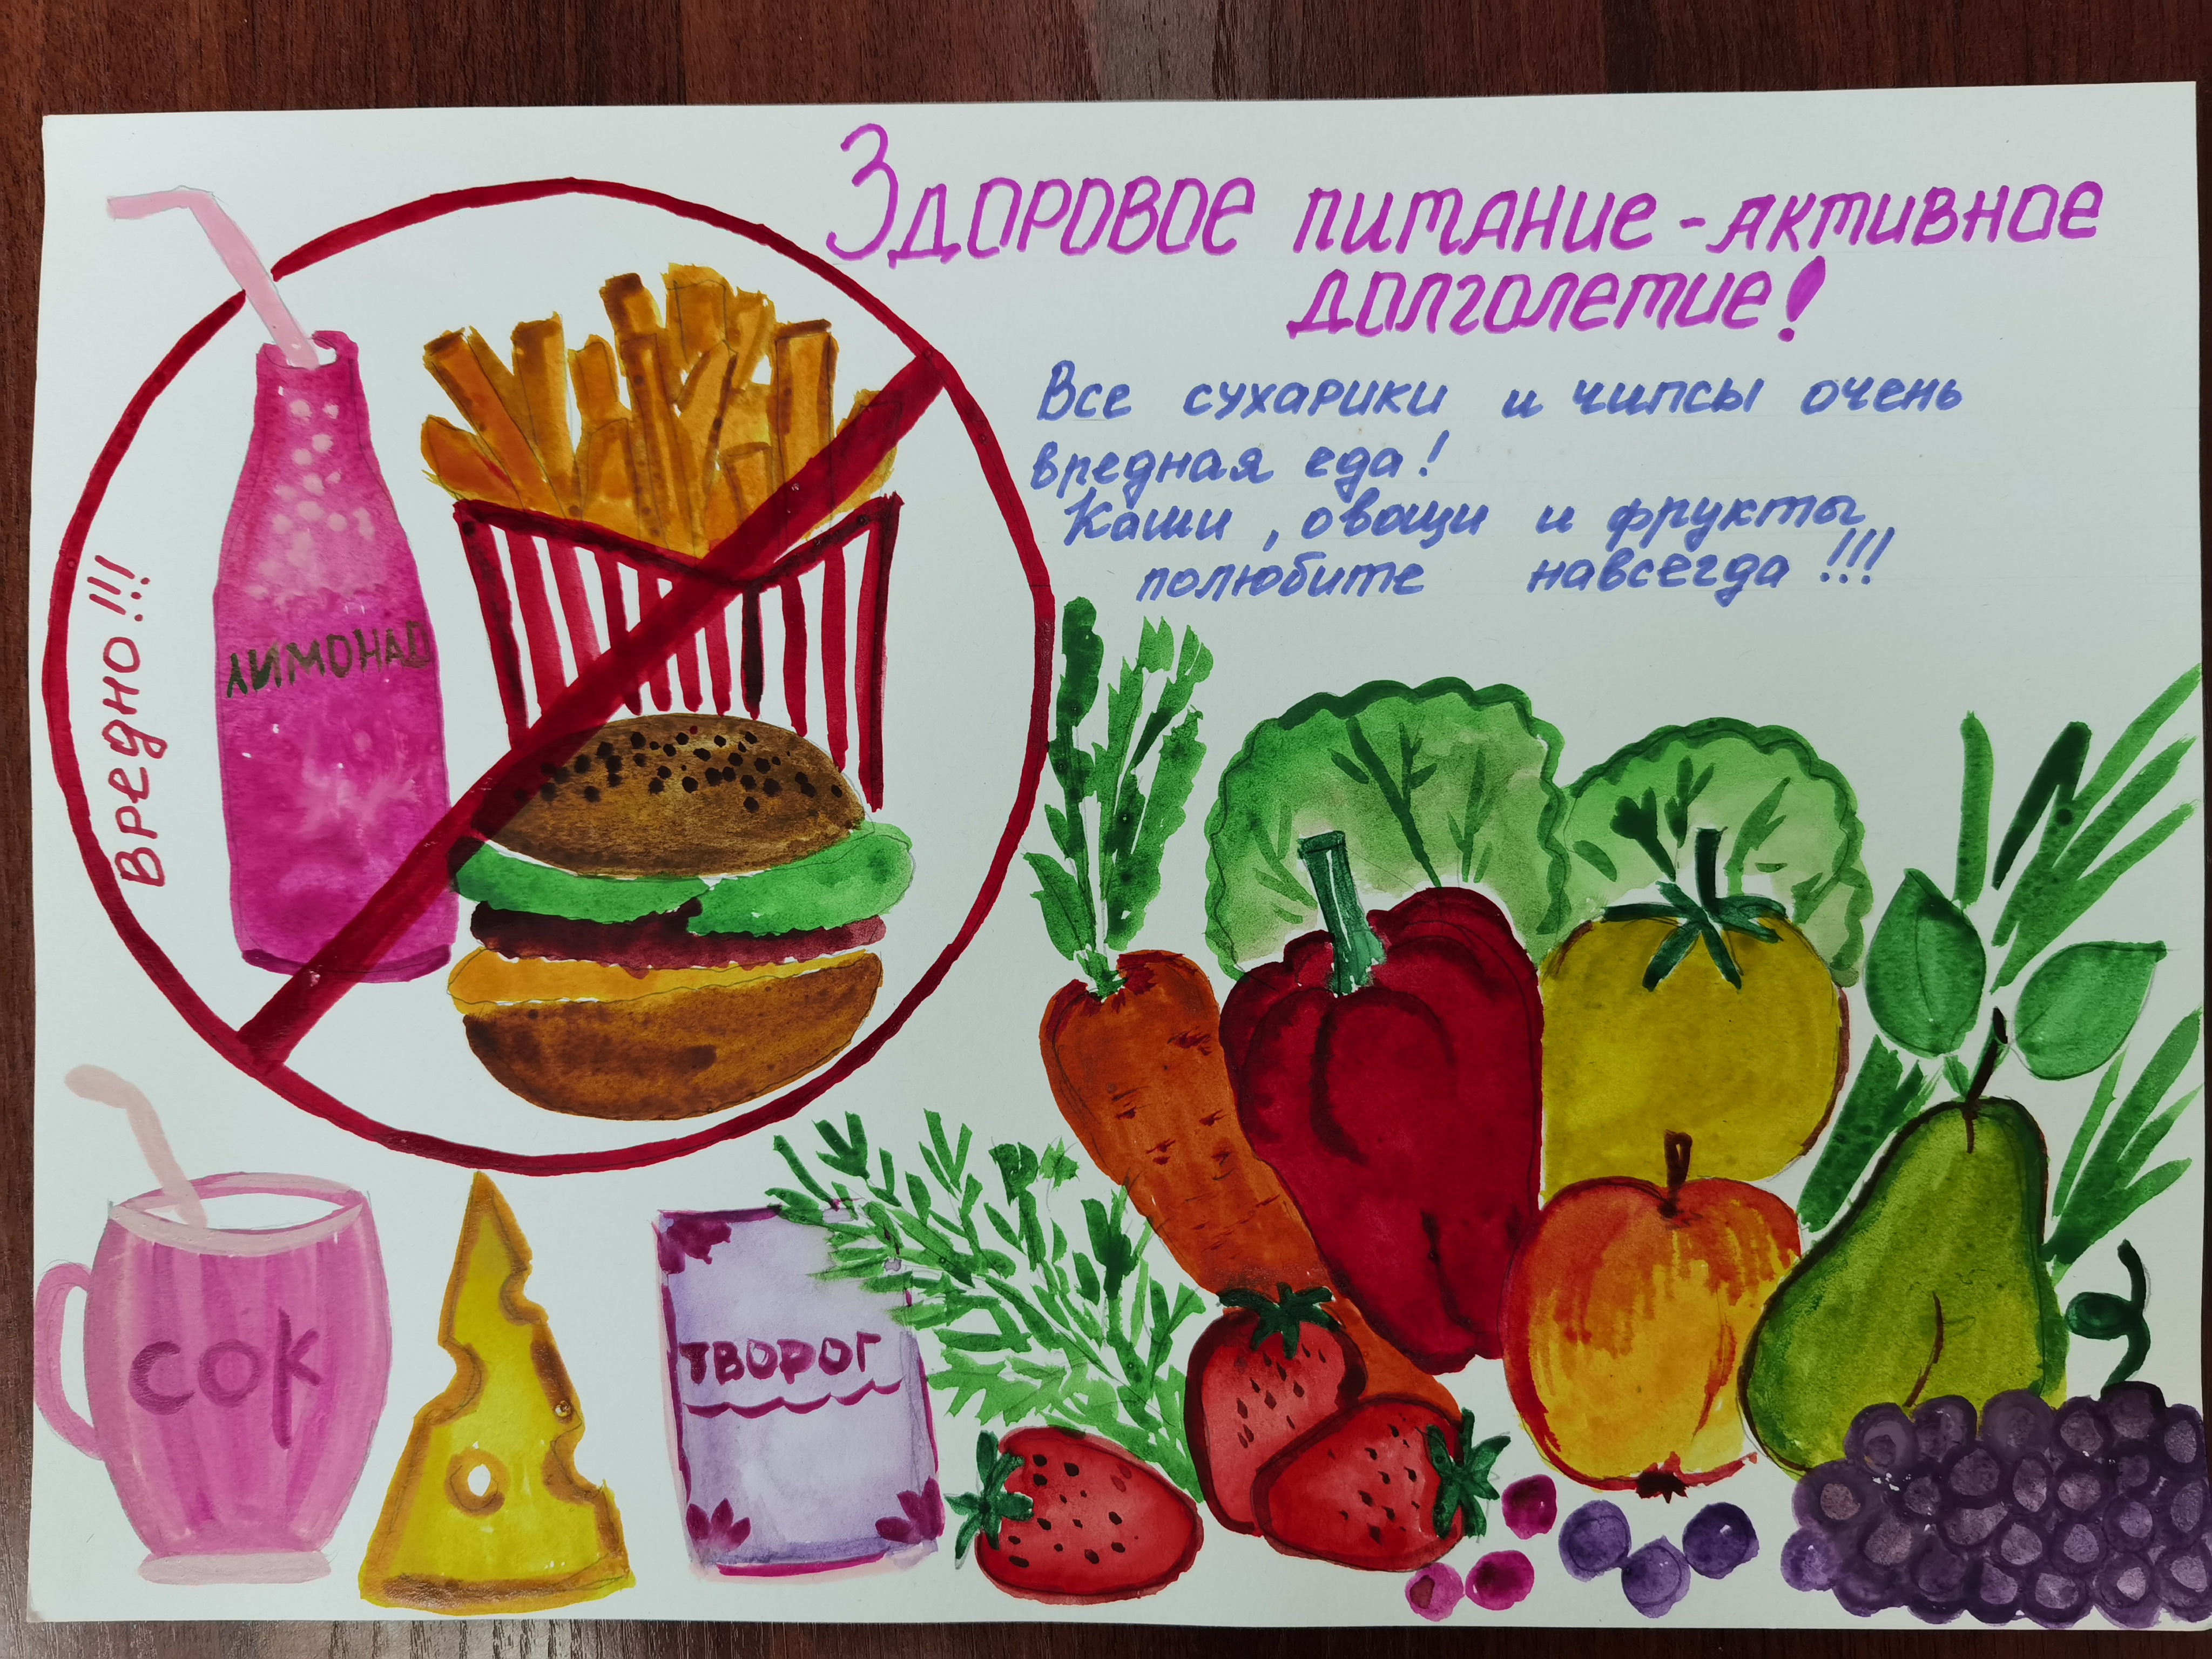 Здоровое питание - активное
долголетие!
Все сухарики и чипсы очень
вредная еда!
Каши, овощи и фрукты
полюбите навсегда!!!
Вредно!!!
ЛИМОНАД
СОК
ТВОРОГ